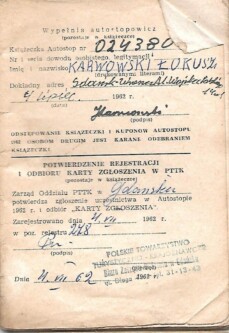 Wypełnia autostopowicz
(pozostaje w książeczce)
Książeczka Autostop nr 024380
Nr i seria dowodu osobistego, legitymacji
Imię i nazwisko KARWOWSKI ŁUKASZ
(drukowanymi literami)
Dokładny adres Gdańsk-Wrzeszcz
4 Lipiec 1962 r.
ODSTĘPOWANIE KSIĄŻECZKI I KUPONÓW AUTOSTOPU
INNYM OSOBOM DRUGIM JEST KARANE ODEBRANIEM
KSIĄŻECZKI
POTWIERDZENIE REJESTRACJI
I ODBIORU KARTY ZGŁOSZENIA W PTTK
(pozostaje w książeczce)
Zarząd Oddziału PTTK w Gdańsku
potwierdza zgłoszenie uczestnictwa w Autostopie
1962 r. i odbiór „KARTY ZGŁOSZENIA".
Zarejestrowano dnia 4. VII 1962 r.
w poz. rejestru 278
POLSKIE TOWARZYSTWO
Dnia 4. VII 62